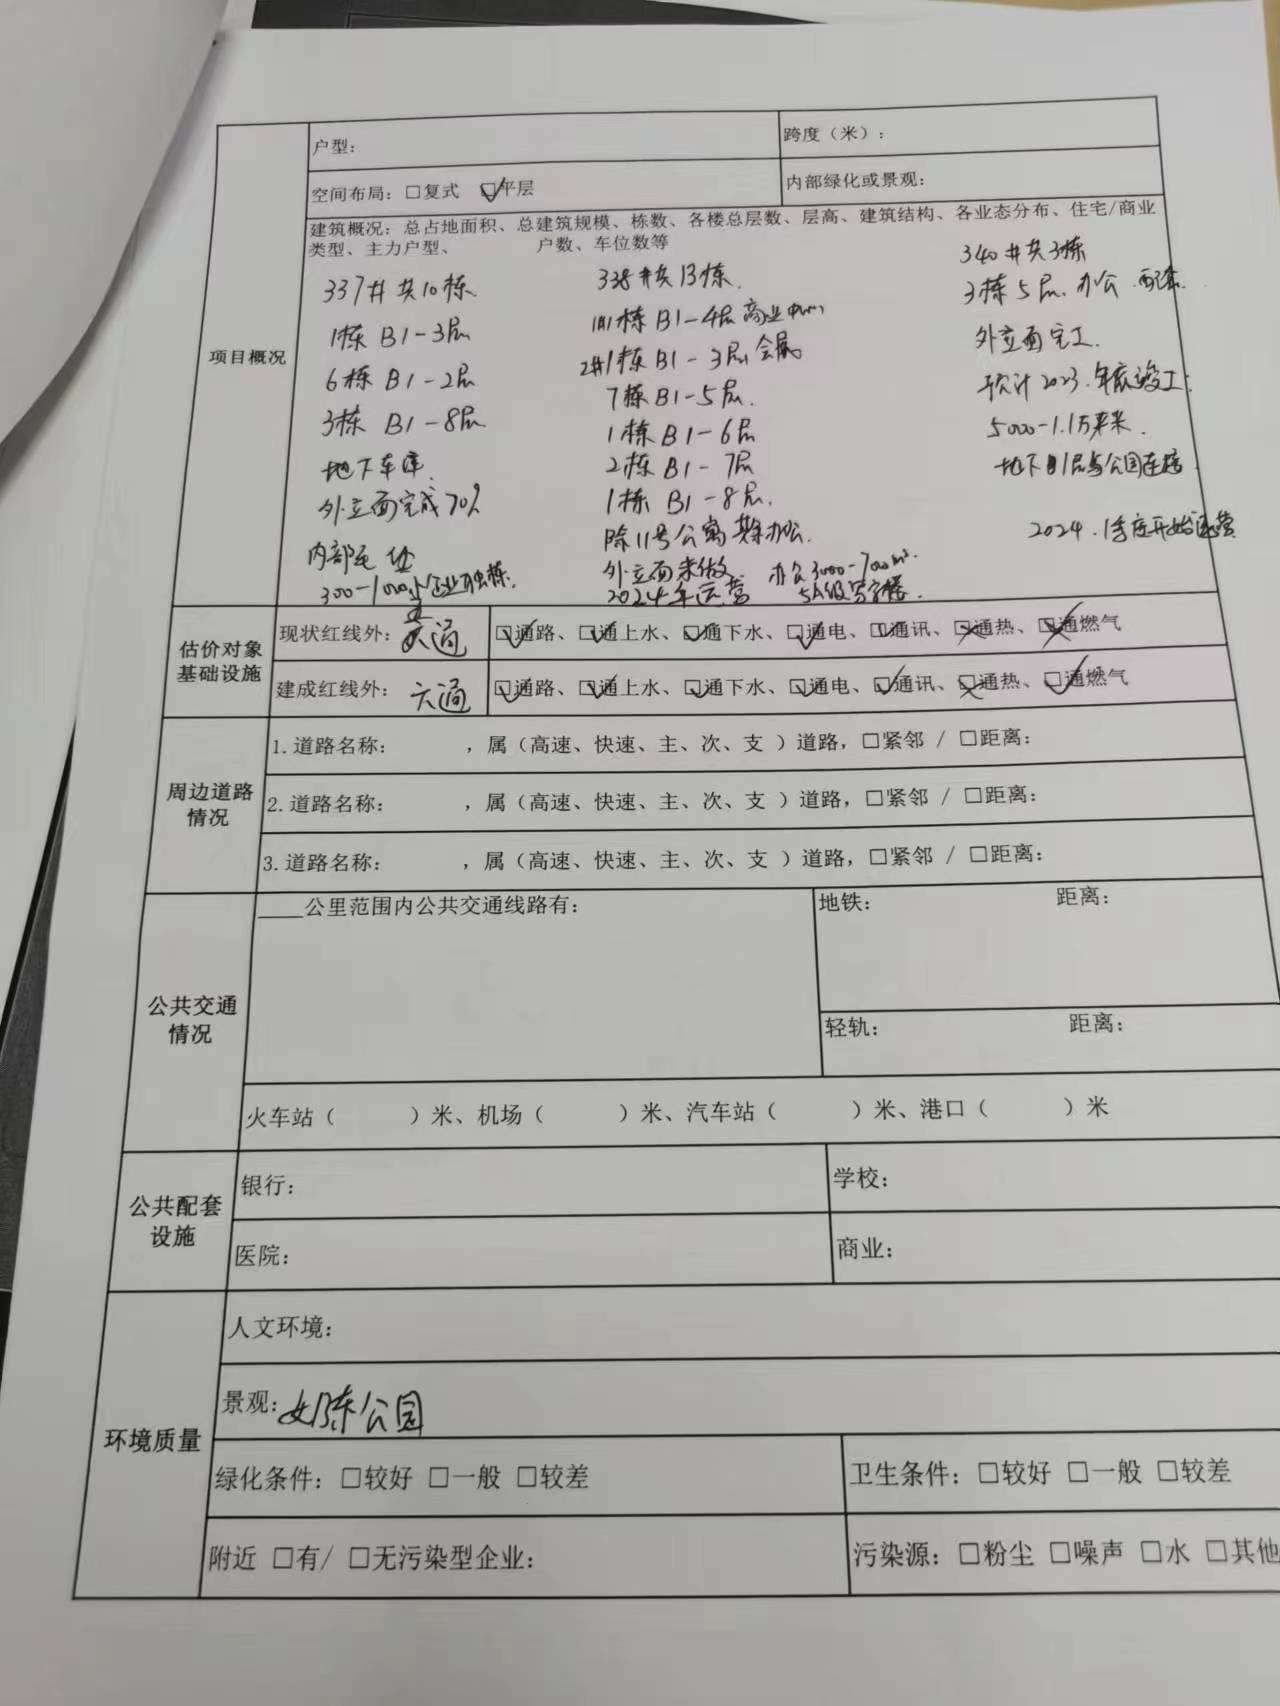 户型：
跨度（米）：
空间布局：□复式 ☑平层
内部绿化或景观：
项目概况
建筑概况：总占地面积、总建筑规模、栋数、各楼总层数、层高、建筑结构、各业态分布、住宅/商业
类型、主力户型、 户数、车位数等
337# 共10栋
1栋 B1-3层
6栋 B1-2层
3栋 B1-8层
地下车库
外立面完成70%
内部毛
300-1000 企业独栋.
338#共13栋.
1#1栋 B1-4层 商业中心
2#1栋 B1-3层 会展
7栋 B1-5层.
1栋 B1-6层
2栋 B1-7层
1栋 B1-8层.
除11号公寓 其余办公.
外立面未做 办公3000-7000m².
2024年运营 5A级写字楼.
340#共3栋
3栋5层. 办公.配套.
外立面完工.
预计2023.年底竣工.
5000-1.1万平米.
地下 1层与公园连接
2024.1季度开始运营
估价对象
基础设施
现状红线外： 五通
☑通路、☑通上水、☑通下水、☑通电、☑通讯、☒通热、☒通燃气
建成红线外： 六通
☑通路、☑通上水、☑通下水、☑通电、☑通讯、☒通热、☑通燃气
周边道路
情况
1.道路名称： ，属（高速、快速、主、次、支 ）道路，□紧邻 / □距离：
2.道路名称： ，属（高速、快速、主、次、支 ）道路，□紧邻 / □距离：
3.道路名称： ，属（高速、快速、主、次、支 ）道路，□紧邻 / □距离：
公共交通
情况
____公里范围内公共交通线路有：
地铁： 距离：
轻轨： 距离：
火车站（ ）米、机场（ ）米、汽车站（ ）米、港口（ ）米
公共配套
设施
银行：
学校：
医院：
商业：
环境质量
人文环境：
景观： 公园
绿化条件：□较好 □一般 □较差
卫生条件：□较好 □一般 □较差
附近 □有/ □无污染型企业：
污染源：□粉尘 □噪声 □水 □其他